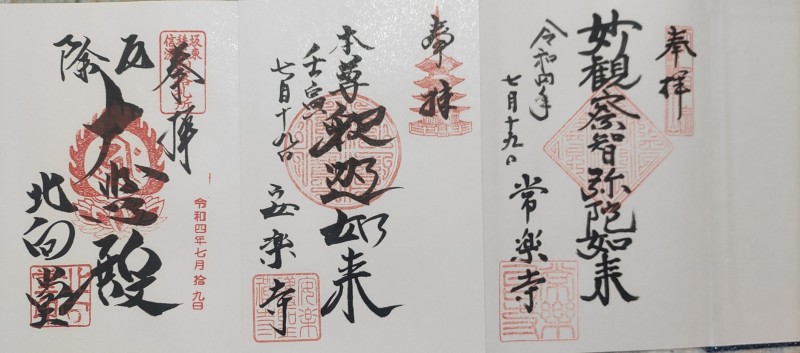 奉拝
妙觀察智弥陀如来
令和四年
七月十九日
常楽寺
奉拝
本尊
釈迦如来
壬寅
七月十九日
安楽寺
奉拝
厄除
大悲殿
北向堂
令和四年七月拾九日